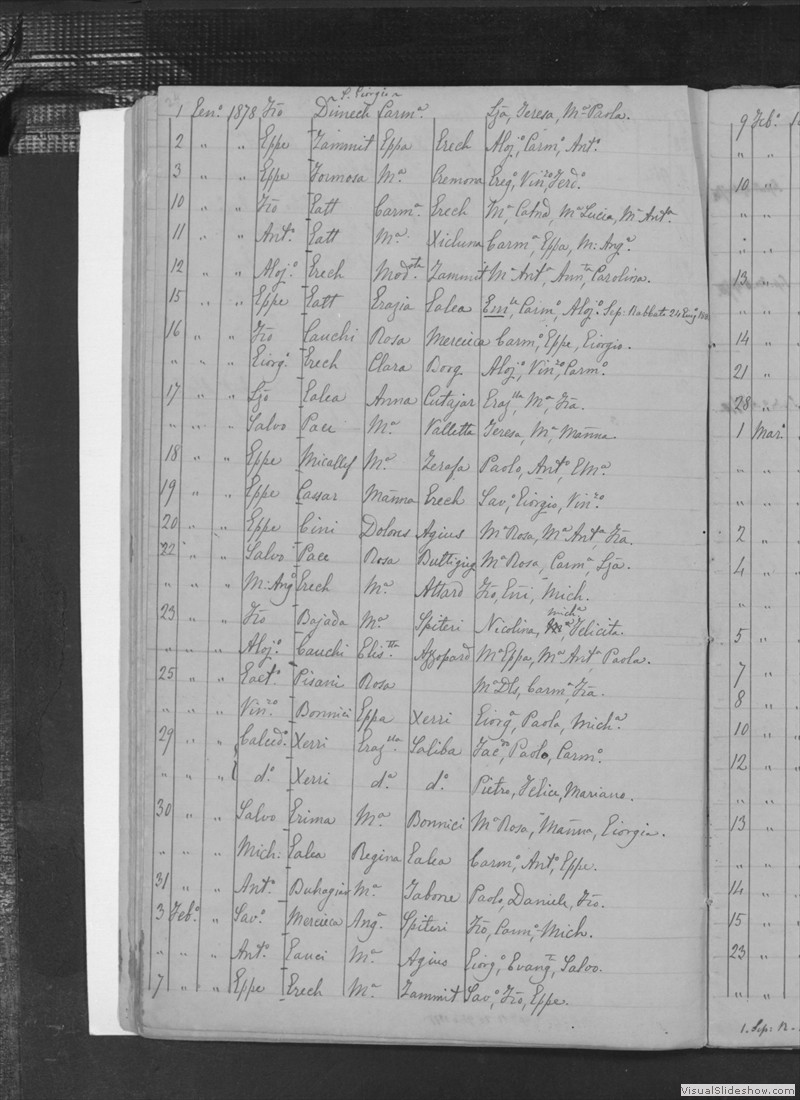 S. Giorgio
1 Gen.º 1878 Fro Dimech Carm.ª Lja, Teresa, Mª Paola.
2 " " Gppe Zammit Gppa Grech Aloj.º, Carm.º, Ant.º
3 " " Gppe Formosa Mª Cremona Greg.º, Vin.zo, Ferd.º
10 " " Fro Gatt Carm.ª Grech Mª Catnª, Mª Lucia, Mª Ant.ª
11 " " Ant.º Gatt Mª Xicluna Carm.ª, Gppa, M: Ang.ª
12 " " Aloj.º Grech Mod.ta Zammit Mª Ant.ª, Ann.ta, Carolina.
15 " " Gppe Gatt Grazia Galea Carm.º, Aloj.º Sep: Rabbato 24
16 " " Fro Cauchi Rosa Mercieca Carm.º, Gppe, Giorgio.
" " " Giorg.º Grech Clara Borg. Aloj.º, Vin.zo, Carm.º
17 " " Ljo Galea Anna Cutajar Graz.lla, Mª, Fra.
" " " Salvo Pace Mª Valletta Teresa, Mª, Mānna
18 " " Gppe Micallef Mª Zerafa Paolo, Ant.º, GMª
19 " " Gppe Cassar Mānna Grech Sav.º, Giorgio, Vin.zo
20 " " Gppe Cini Dolores Agius Mª Rosa, Mª Ant.ª, Fra.
22 " " Salvo Pace Rosa Buttigieg Mª Rosa, Carm.ª, Lja.
" " " M: Ang.º Grech Mª Attard Fro, Gni, Mich.
23 " " Fro Bajada Mª Spiteri Nicolina, Mich.ª, Felicita.
" " " Aloj.º Cauchi Elis.tta Azzopard Mª Gppa, Mª Ant.ª, Paola.
25 " " Gaet.º Pisani Rosa Mª Dls, Carm.ª, Fra.
" " " Vin.zo Bonnici Gppa Xerri Giorg.ª, Paola, Mich.ª
29 " " Calced.º Xerri Graz.lla Saliba Paolo, Carm.º
" " " d.º Xerri d.ª d.º Pietro, Felice, Mariano.
30 " " Salvo Grima Mª Bonnici Mª Rosa, Mānna, Giorgia.
" " " Mich: Galea Regina Galea Carm.º, Ant.º, Gppe.
31 " " Ant.º Buhagiar Mª Tabone Paolo, Daniele, Fro.
3 Feb.º " Sav.º Mercieca Ang.ª Spiteri Fro, Carm.º, Mich.
" " " Ant.º Gauci Mª Agius Giorg.º, Evang.ta, Salvo.
7 " " Gppe Grech Mª Zammit Sav.º, Fro, Gppe.
9 Feb.º
" "
10 "
" "
" "
13 "
14 "
21 "
28 "
1 Mar.º
" "
" "
2 "
4 "
" "
5 "
7 "
8 "
10 "
12 "
" "
13 "
" "
14 "
15 "
23 "
" "
1. Sep: R.
VisualSlideshow.com